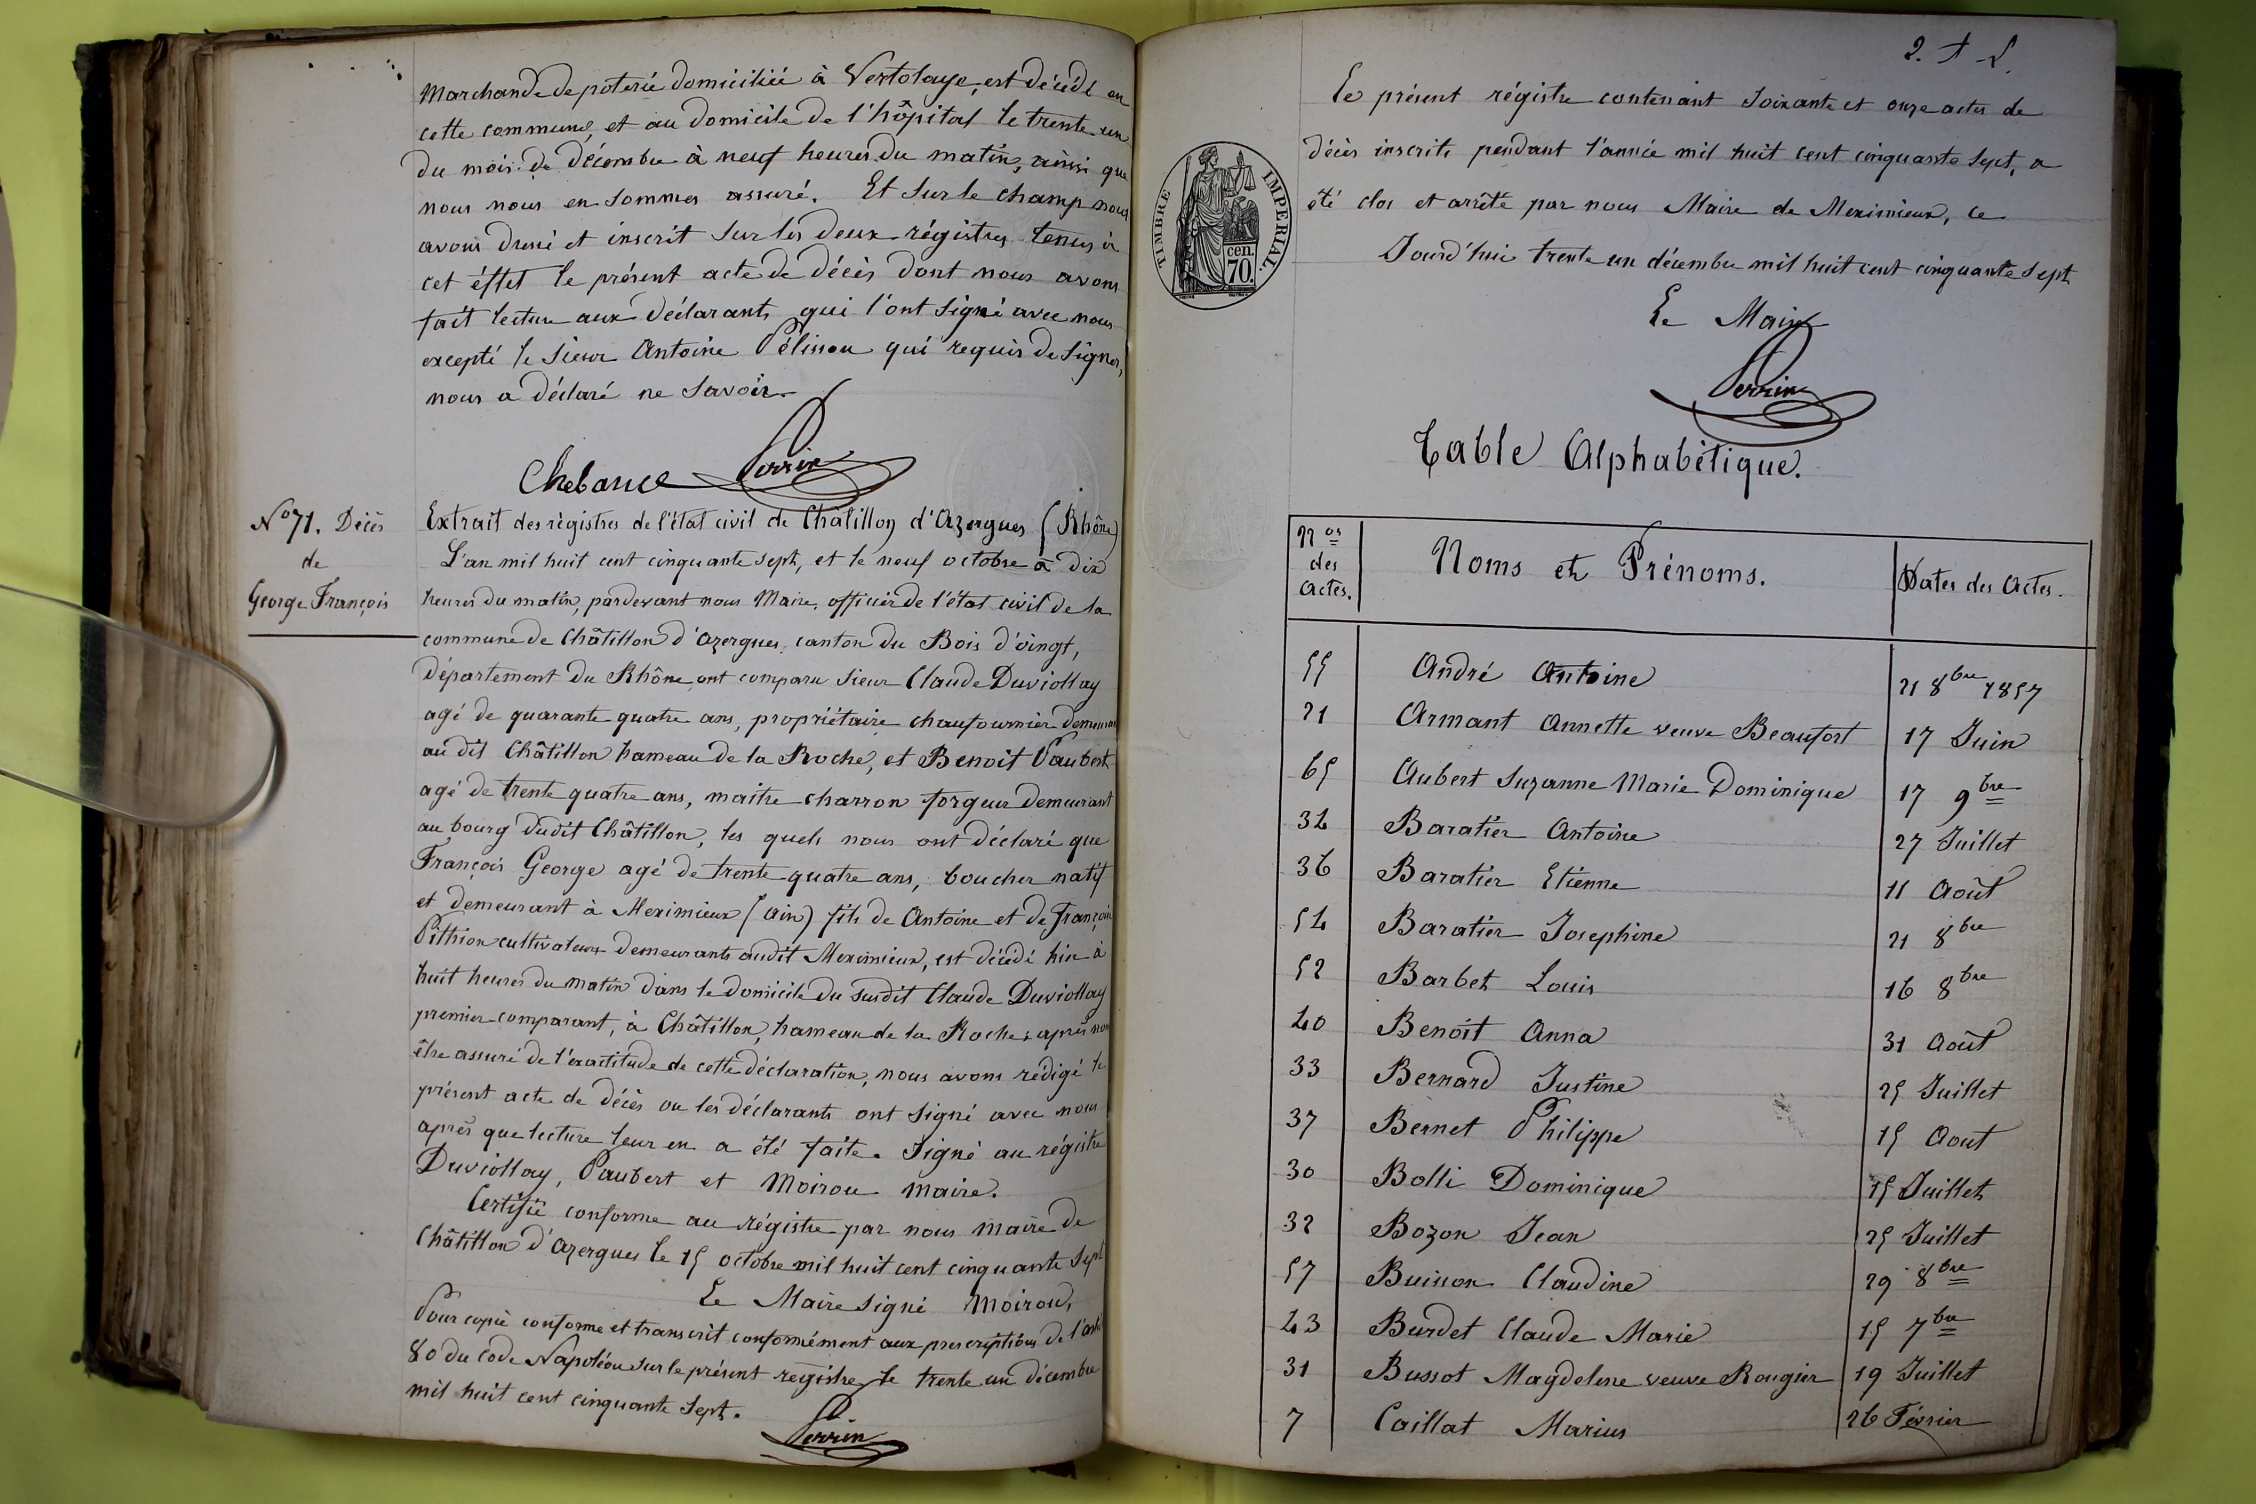 Marchande de poterie domiciliée à Vertolaye, est décédé en
cette commune, et au domicile de l'hôpital le trente-un
du mois de décembre à neuf heures du matin, ainsi que
nous nous en sommes assuré. Et sur le champ nous
avons dressé et inscrit sur les deux régistres tenus à
cet éffet le présent acte de décès dont nous avons
fait lecture aux déclarants qui l'ont signé avec nous
excepté le sieur Antoine Pélisson qui requis de signer,
nous a déclaré ne savoir.
Chebance Perrin
N° 71. Décès
de
George François
Extrait des règistres de l'état civil de Châtillon d'Azergues (Rhône)
L'an mil huit cent cinquante sept, et le neuf octobre à dix
heures du matin, pardevant nous Maire, officier de l'état civil de la
commune de Châtillon d'azergues, canton du Bois d'oingt,
département du Rhône, ont comparu sieur Claude Duviollay
agé de quarante quatre ans, propriétaire chaufournier demeurant
au dit Châtillon hameau de la Roche, et Benoit Paubert
agé de trente quatre ans, maitre charron forgeur demeurant
au bourg dudit Châtillon, les quels nous ont déclaré que
François George agé de trente-quatre ans, boucher natif
et demeurant à Meximieux (Ain) fils de Antoine et de François
Pithion cultivateurs demeurants audit Meximieux, est décédé hier à
huit heures du matin dans le domicile du susdit Claude Duviollay
premier comparant, à Châtillon, hameau de la Roche; après nous
être assuré de l'exactitude de cette déclaration, nous avons rédigé le
présent acte de décès ou les déclarants ont signé avec nous
après que lecture leur en a été faite. Signé au régistre
Duviollay, Paubert et Moirou maire.
Certifié conforme au régistre par nous maire de
Châtillon d'azergues le 15 octobre mil huit cent cinquante sept
Le Maire signé Moirou,
Pour copie conforme et transcrit conformément aux prescriptions de l'art
80 du code Napoléon sur le présent registre le trente un décembre
mil huit cent cinquante sept.
Perrin
Le présent régistre contenant soixante et onze actes de
décès inscrits pendant l'année mil huit cent cinquante sept, a
été clos et arrêté par nous Maire de Meximieux, ce
Jourd'hui trente un décembre mil huit cent cinquante sept
TIMBRE IMPERIAL.
cen.
70.
Le Maire
Perrin
Table Alphabétique.
Nos des actes. Noms et Prénoms. Dates des Actes.
55 André Antoine 21 8bre 1857
21 Armant Annette veuve Beaufort 17 Juin
65 Aubert Suzanne Marie Dominique 17 9bre
34 Baratier Antoine 27 Juillet
36 Baratier Etienne 11 Août
54 Baratier Josephine 21 8bre
52 Barbet Louis 16 8bre
40 Benoît Anna 31 Août
33 Bernard Justine 25 Juillet
37 Bernet Philippe 15 Aout
30 Bolli Dominique 15 Juillet
32 Bozon Jean 25 Juillet
57 Buisson Claudine 29 8bre
43 Burdet Claude Marie 15 7bre
31 Bussot Magdelene veuve Rougier 19 Juillet
7 Caillat Marius 26 Février